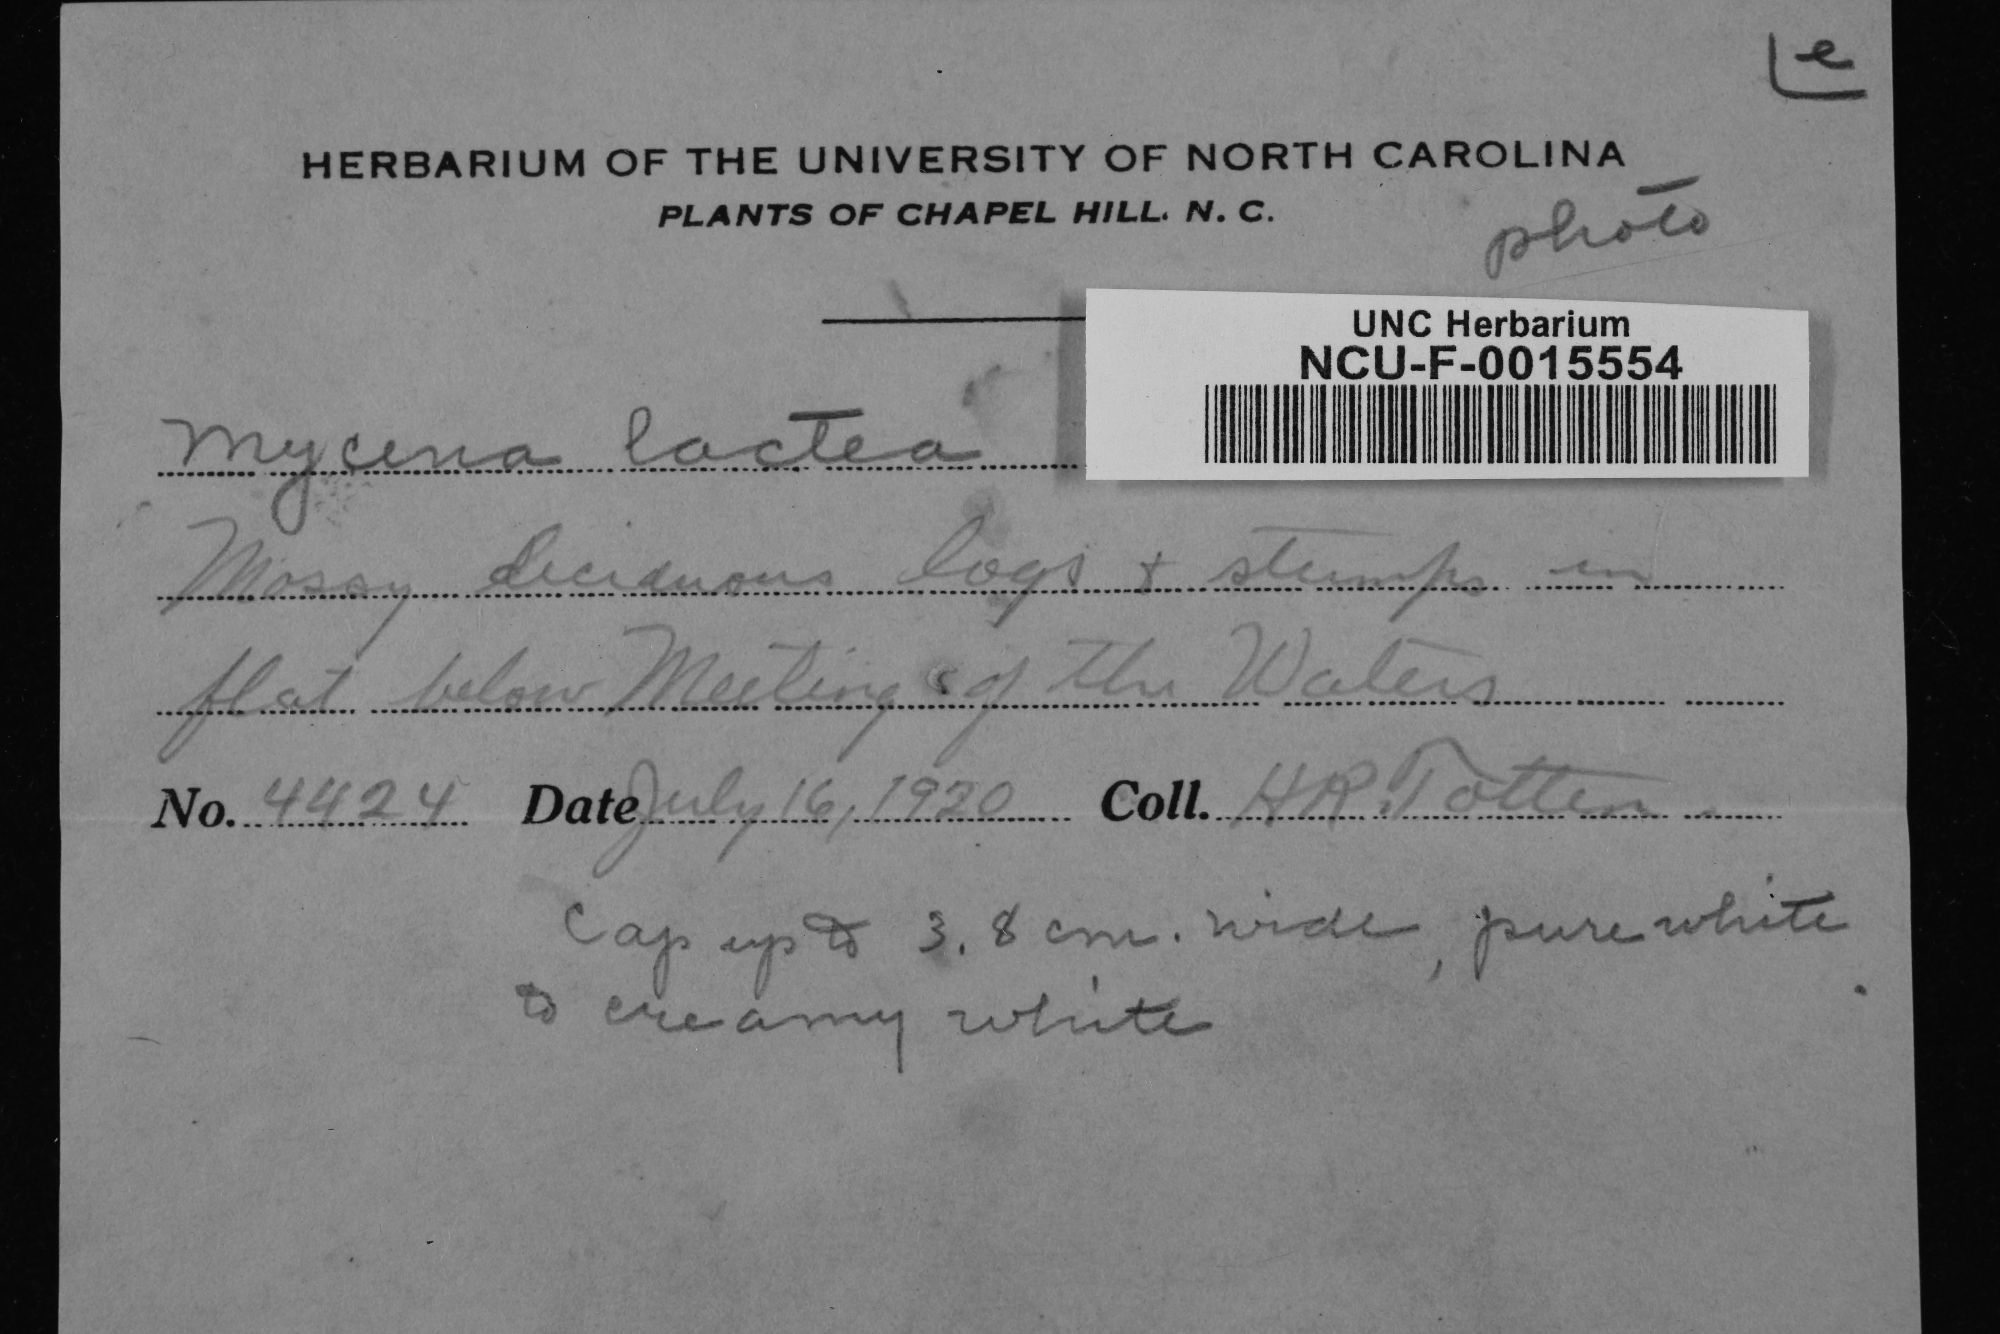 e
HERBARIUM OF THE UNIVERSITY OF NORTH CAROLINA
PLANTS OF CHAPEL HILL. N. C.
photo
UNC Herbarium
NCU-F-0015554
Mycena lactea
Mossy deciduous logs + stumps in
flat below Meeting of the Waters
No. 4424 Date July 16, 1920 Coll. H R Totten
Cap up to 3.8 cm. wide, pure white
to creamy white.